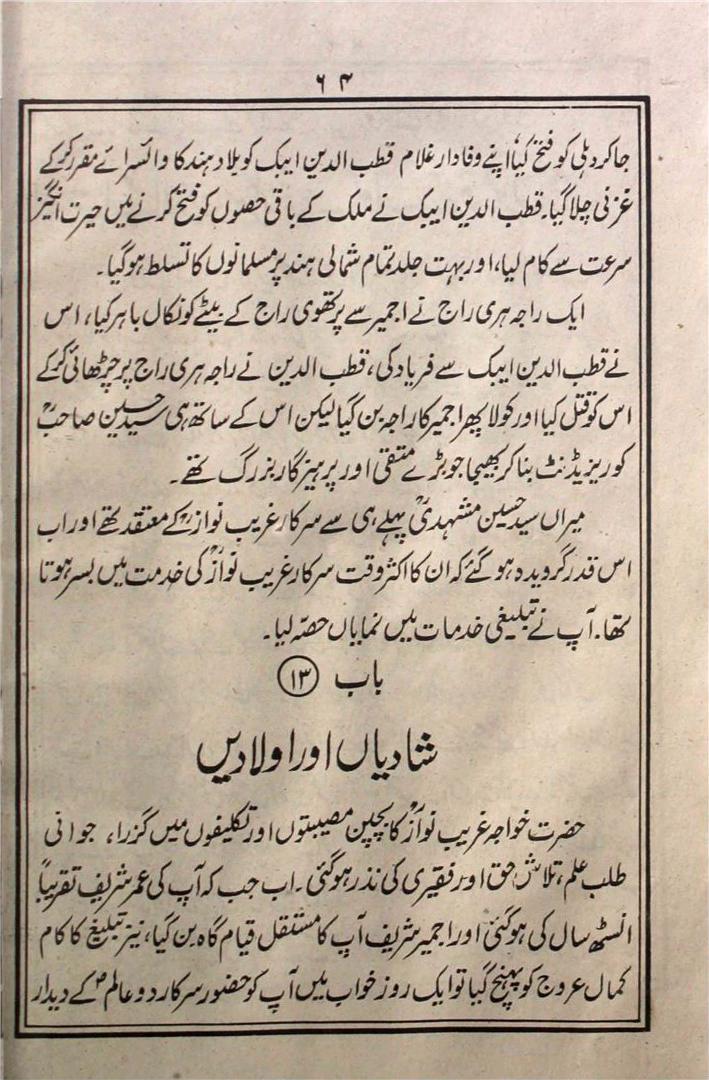 ۶۴
جا کر دہلی کو فتح کیا، اپنے وفادار غلام قطب الدین ایبک کو بلاد ہند کا وائسرائے مقرر کر کے
غزنی چلا گیا۔ قطب الدین ایبک نے ملک کے باقی حصوں کو فتح کرنے میں حیرت انگیز
سرعت سے کام لیا، اور بہت جلد تمام شمالی ہند پر مسلمانوں کا تسلط ہو گیا۔
ایک راجہ ہری راج نے اجمیر سے پرتھوی راج کے بیٹے کو نکال باہر کیا، اس
نے قطب الدین ایبک سے فریاد کی، قطب الدین نے راجہ ہری راج پر چڑھائی کر کے
اس کو قتل کیا اور کولا پھر اجمیر کا راجہ بن گیا لیکن اس کے ساتھ ہی سید حسین صاحبؒ
کو ریزیڈنٹ بنا کر بھیجا جو بڑے متقی اور پرہیزگار بزرگ تھے۔
میراں سید حسین مشہدیؒ پہلے ہی سے سرکار غریب نوازؒ کے معتقد تھے اور اب
اس قدر گرویدہ ہو گئے کہ ان کا اکثر وقت سرکار غریب نوازؒ کی خدمت میں بسر ہوتا
تھا۔ آپ نے تبلیغی خدمات میں نمایاں حصہ لیا۔
باب ۱۳
شادیاں اور اولادیں
حضرت خواجہ غریب نوازؒ کا بچپن مصیبتوں اور تکلیفوں میں گزرا، جوانی
طلب علم، تلاش حق اور فقیری کی نذر ہو گئی۔ اب جب کہ آپ کی عمر شریف تقریباً
انسٹھ سال کی ہو گئی اور اجمیر شریف آپ کا مستقل قیام گاہ بن گیا، نیز تبلیغ کا کام
کمال عروج کو پہنچ گیا تو ایک روز خواب میں آپ کو حضور سرکار دو عالم ؐ کے دیدار